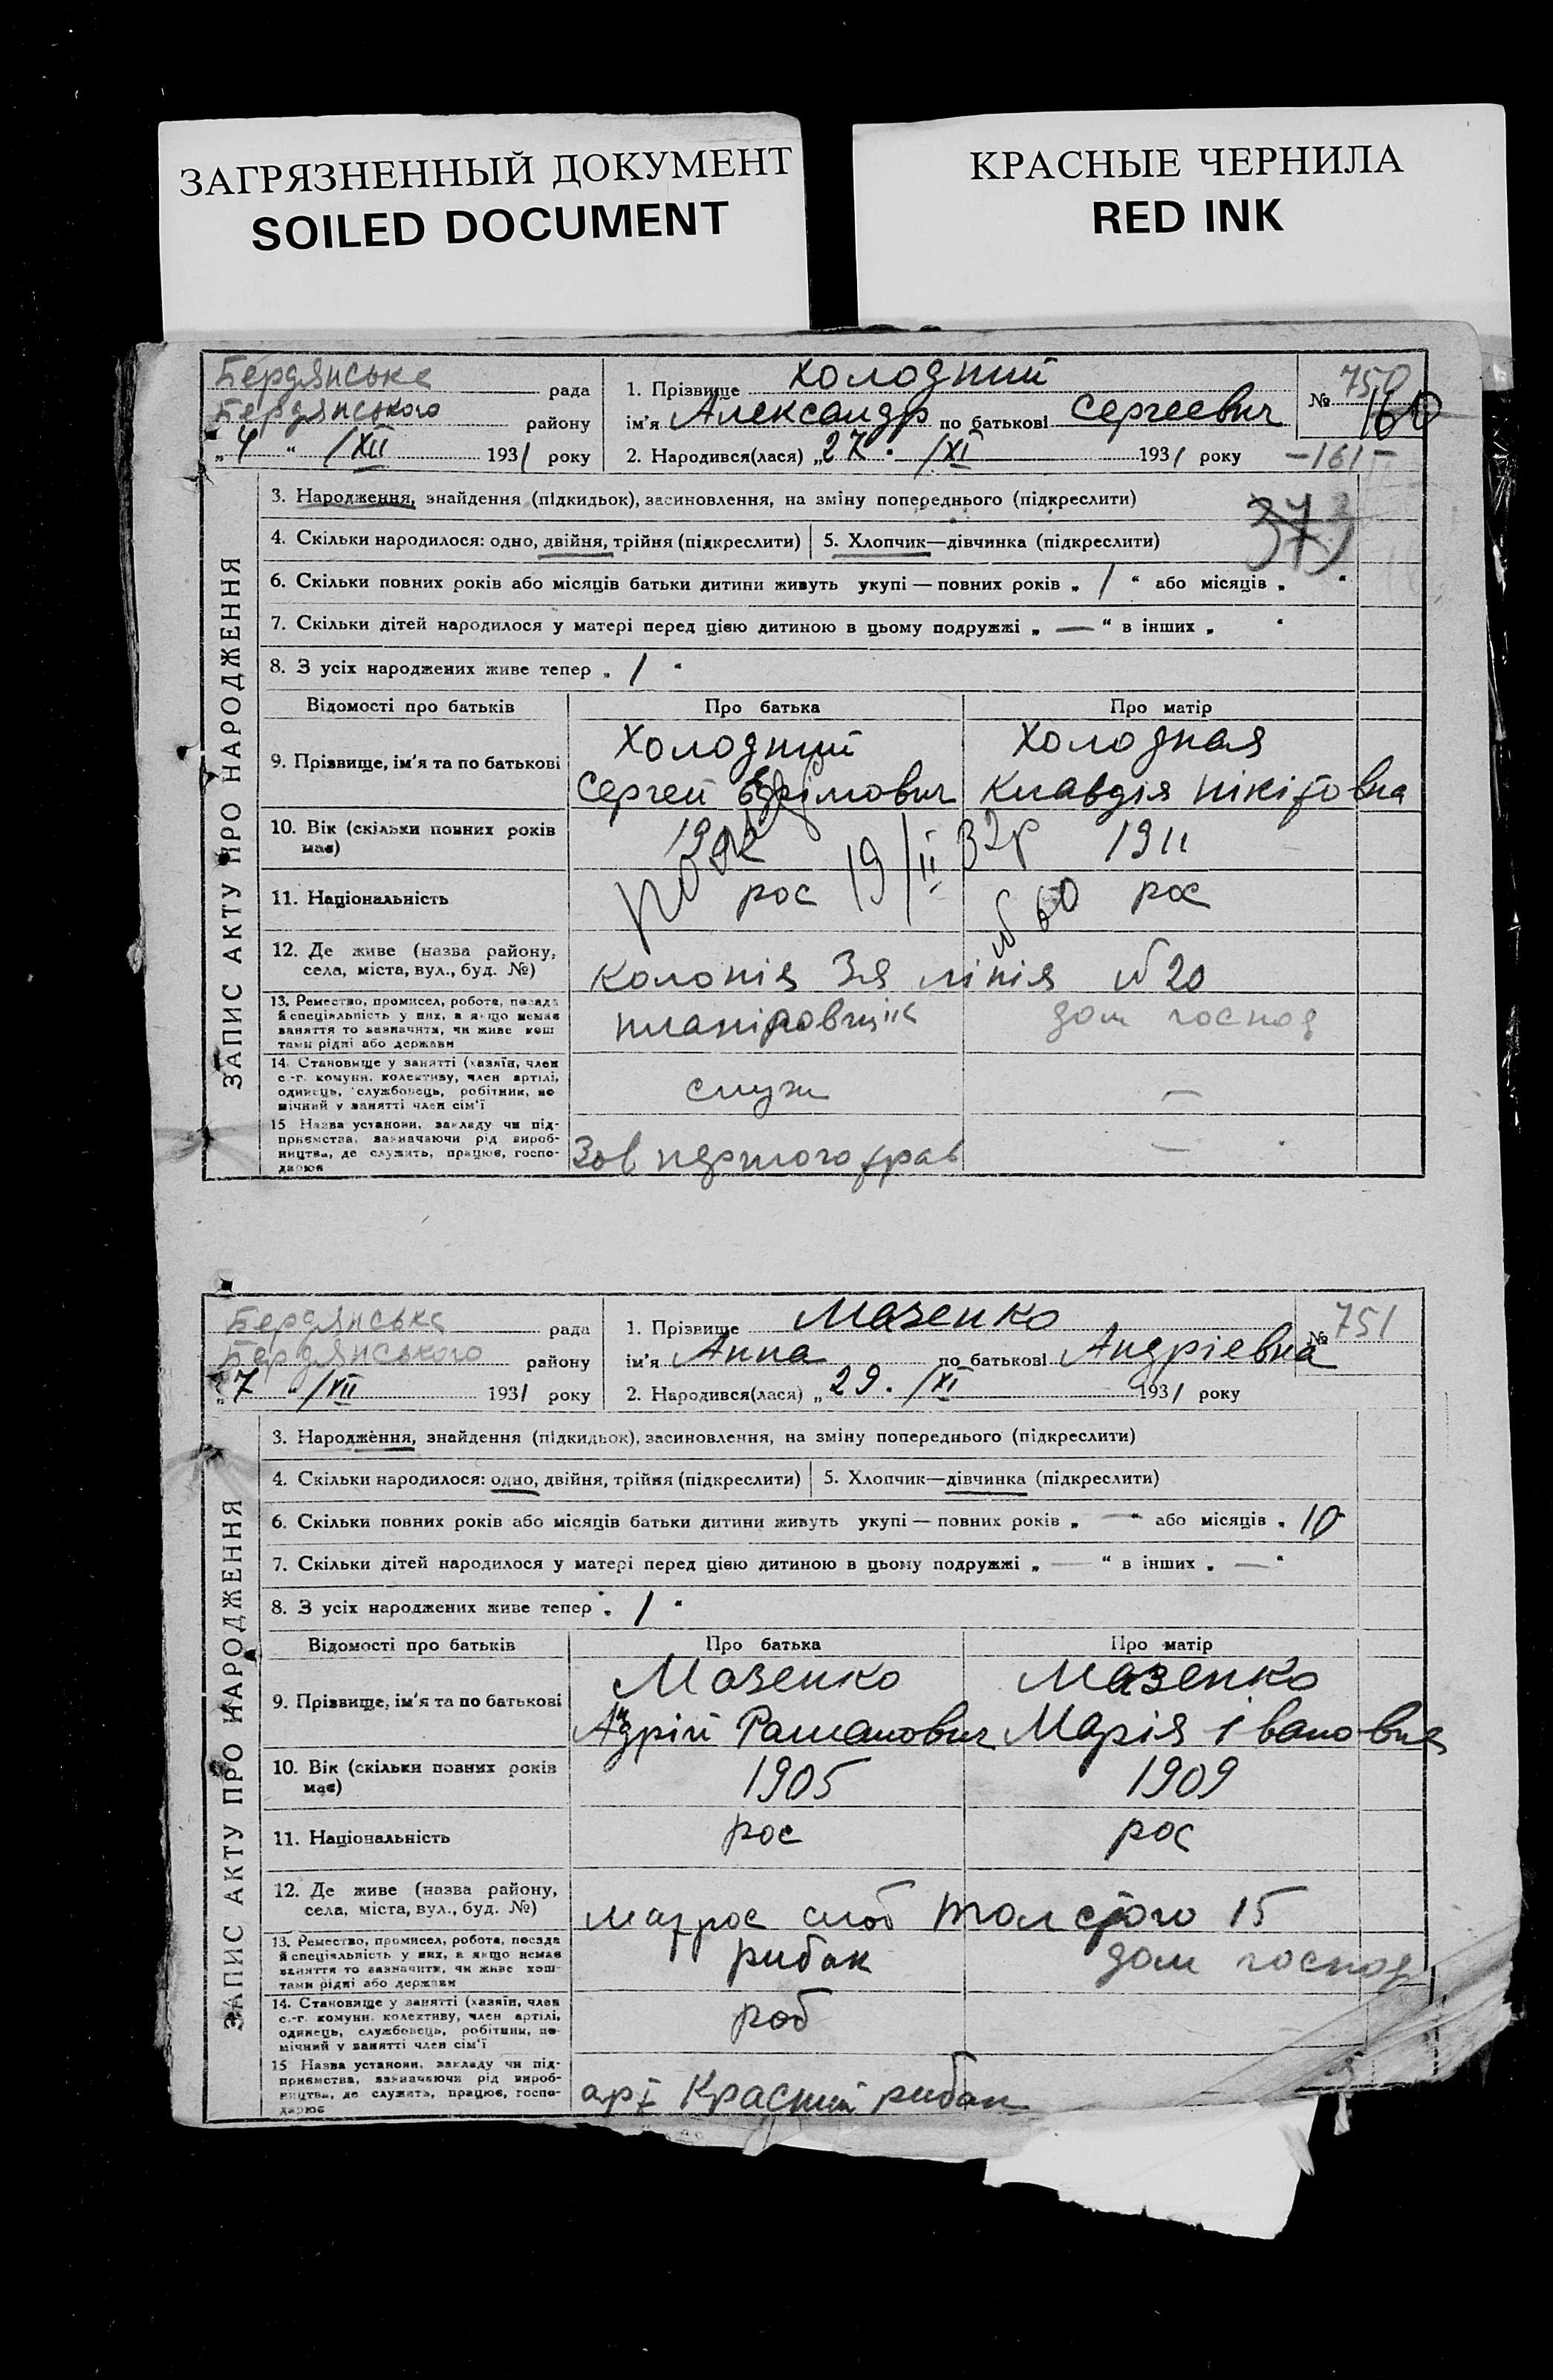 ЗАГРЯЗНЕННЫЙ ДОКУМЕНТ
SOILED DOCUMENT
КРАСНЫЕ ЧЕРНИЛА
RED INK
ЗАПИС АКТУ ПРО НАРОДЖЕННЯ
Бердянська рада
Бердянського району
„4“ /XII 1931 року
1. Прізвище Холодний
ім'я Александр по батькові Сергеевич
2. Народився(лася) „27. /XI 1931 року
№ 750
160
—161—
373
3. Народження, знайдення (підкидьок), засиновлення, на зміну попереднього (підкреслити)
4. Скільки народилося: одно, двійня, трійня (підкреслити) 5. Хлопчик—дівчинка (підкреслити)
6. Скільки повних років або місяців батьки дитини живуть укупі — повних років „ 1 “ або місяців „ “
7. Скільки дітей народилося у матері перед цією дитиною в цьому подружжі „ — “ в інших „ “
8. З усіх народжених живе тепер „ 1 “
Відомості про батьків Про батька Про матір
9. Прізвище, ім'я та по батькові
Холодний Холодная
Сергей Клавдія Нікітовна
10. Вік (скільки повних років має)
1911
19/II 32р
№ 60
11. Національність рос рос
12. Де живе (назва району, села, міста, вул., буд. №)
Колонія 3я лінія № 20
13. Ремество, промисел, робота, посада й спеціяльність у них, а якщо немає заняття то зазначити, чи живе коштами рідні або держави
планіровщик дом господ
14. Становище у занятті (хазяїн, член с.-г. комуни, колективу, член артілі, одинець, службовець, робітник, помічний у занятті член сім'ї
служ —
15 Назва установи, закладу чи підприємства, зазначаючи рід виробництва, де служить, працює, господарює
Зов першого трав —
ЗАПИС АКТУ ПРО НАРОДЖЕННЯ
Бердянська рада
Бердянського району
„7“ /XII 1931 року
1. Прізвище Мазенко
ім'я Анна по батькові Андріевна
2. Народився(лася) „29. /XI 1931 року
№ 751
3. Народження, знайдення (підкидьок), засиновлення, на зміну попереднього (підкреслити)
4. Скільки народилося: одно, двійня, трійня (підкреслити) 5. Хлопчик—дівчинка (підкреслити)
6. Скільки повних років або місяців батьки дитини живуть укупі — повних років „ — “ або місяців „ 10
7. Скільки дітей народилося у матері перед цією дитиною в цьому подружжі „ — “ в інших „ — “
8. З усіх народжених живе тепер „ 1 “
Відомості про батьків Про батька Про матір
9. Прізвище, ім'я та по батькові
Мазенко Мазенко
Андрій Раманович Марія Івановна
10. Вік (скільки повних років має)
1905 1909
11. Національність рос рос
12. Де живе (назва району, села, міста, вул., буд. №)
матрос слоб Толстого 15
13. Ремество, промисел, робота, посада й спеціяльність у них, а якщо немає заняття то зазначити, чи живе коштами рідні або держави
рибак дом господ
14. Становище у занятті (хазяїн, член с.-г. комуни, колективу, член артілі, одинець, службовець, робітник, помічний у занятті член сім'ї
роб
15 Назва установи, закладу чи підприємства, зазначаючи рід виробництва, де служить, працює, господарює
арт Красний рибак